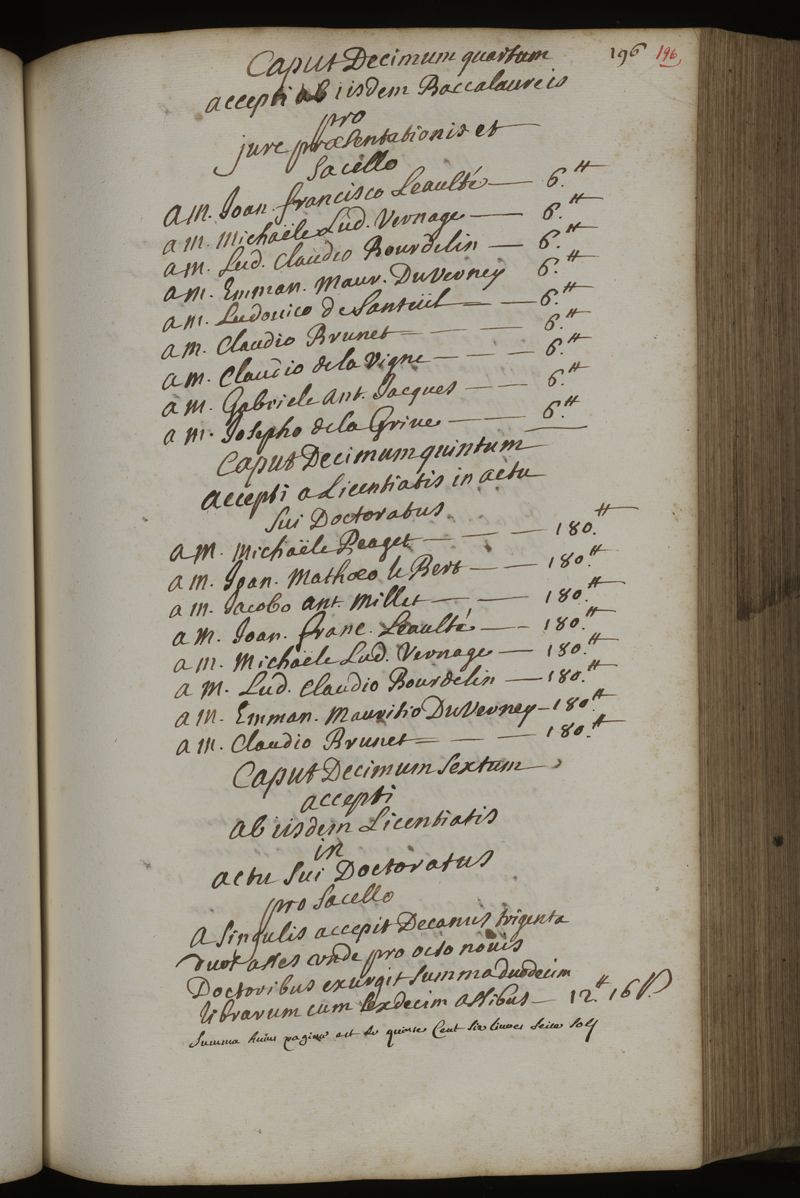 196 196
Caput Decimum quartum
accepti ab iisdem Baccalaureis
pro
jure præsentationis et
sacello
a M. Joan. francisco Leaulté — 6.tt
a M. Michaële Lud. Vernage — 6.tt
a M. Lud. Claudio Bourdelin — 6.tt
a M. Emman. Maur. DuVerney 6.tt
a M. Ludovico de Santeüil — 6.tt
a M. Claudio Brunet — — — 6.tt
a M. Claudio de la Vigne — — — 6.tt
a M. Gabriele Ant. Jacques — — 6.tt
a M. Josepho de la Grive — — 6.tt
Caput Decimum quintum
accepti a Licentiatis in actu
sui Doctoratus
a M. Michaële Peaget — — — 180.tt
a M. Joan. Mathæo le Bert — — 180.tt
a M. Jacobo Ant. Millet — — 180.tt
a M. Joan. franc. Leaulté — — 180.tt
a M. Michaële Lud. Vernage — 180.tt
a M. Lud. Claudio Bourdelin — 180.tt
a M. Emman. Mauritio DuVerney — 180.tt
a M. Claudio Brunet — — — 180.tt
Caput Decimum sextum
accepti
ab iisdem Licentiatis
in
actu sui Doctoratus
pro sacello
a singulis accepit Decanus triginta
duos asses unde pro octo novis
Doctoribus exurgit summa duodecim
librarum cum sexdecim assibus — 12.tt 16 ſ.
Summa huius paginæ est de quinze Cent six livres seize solz